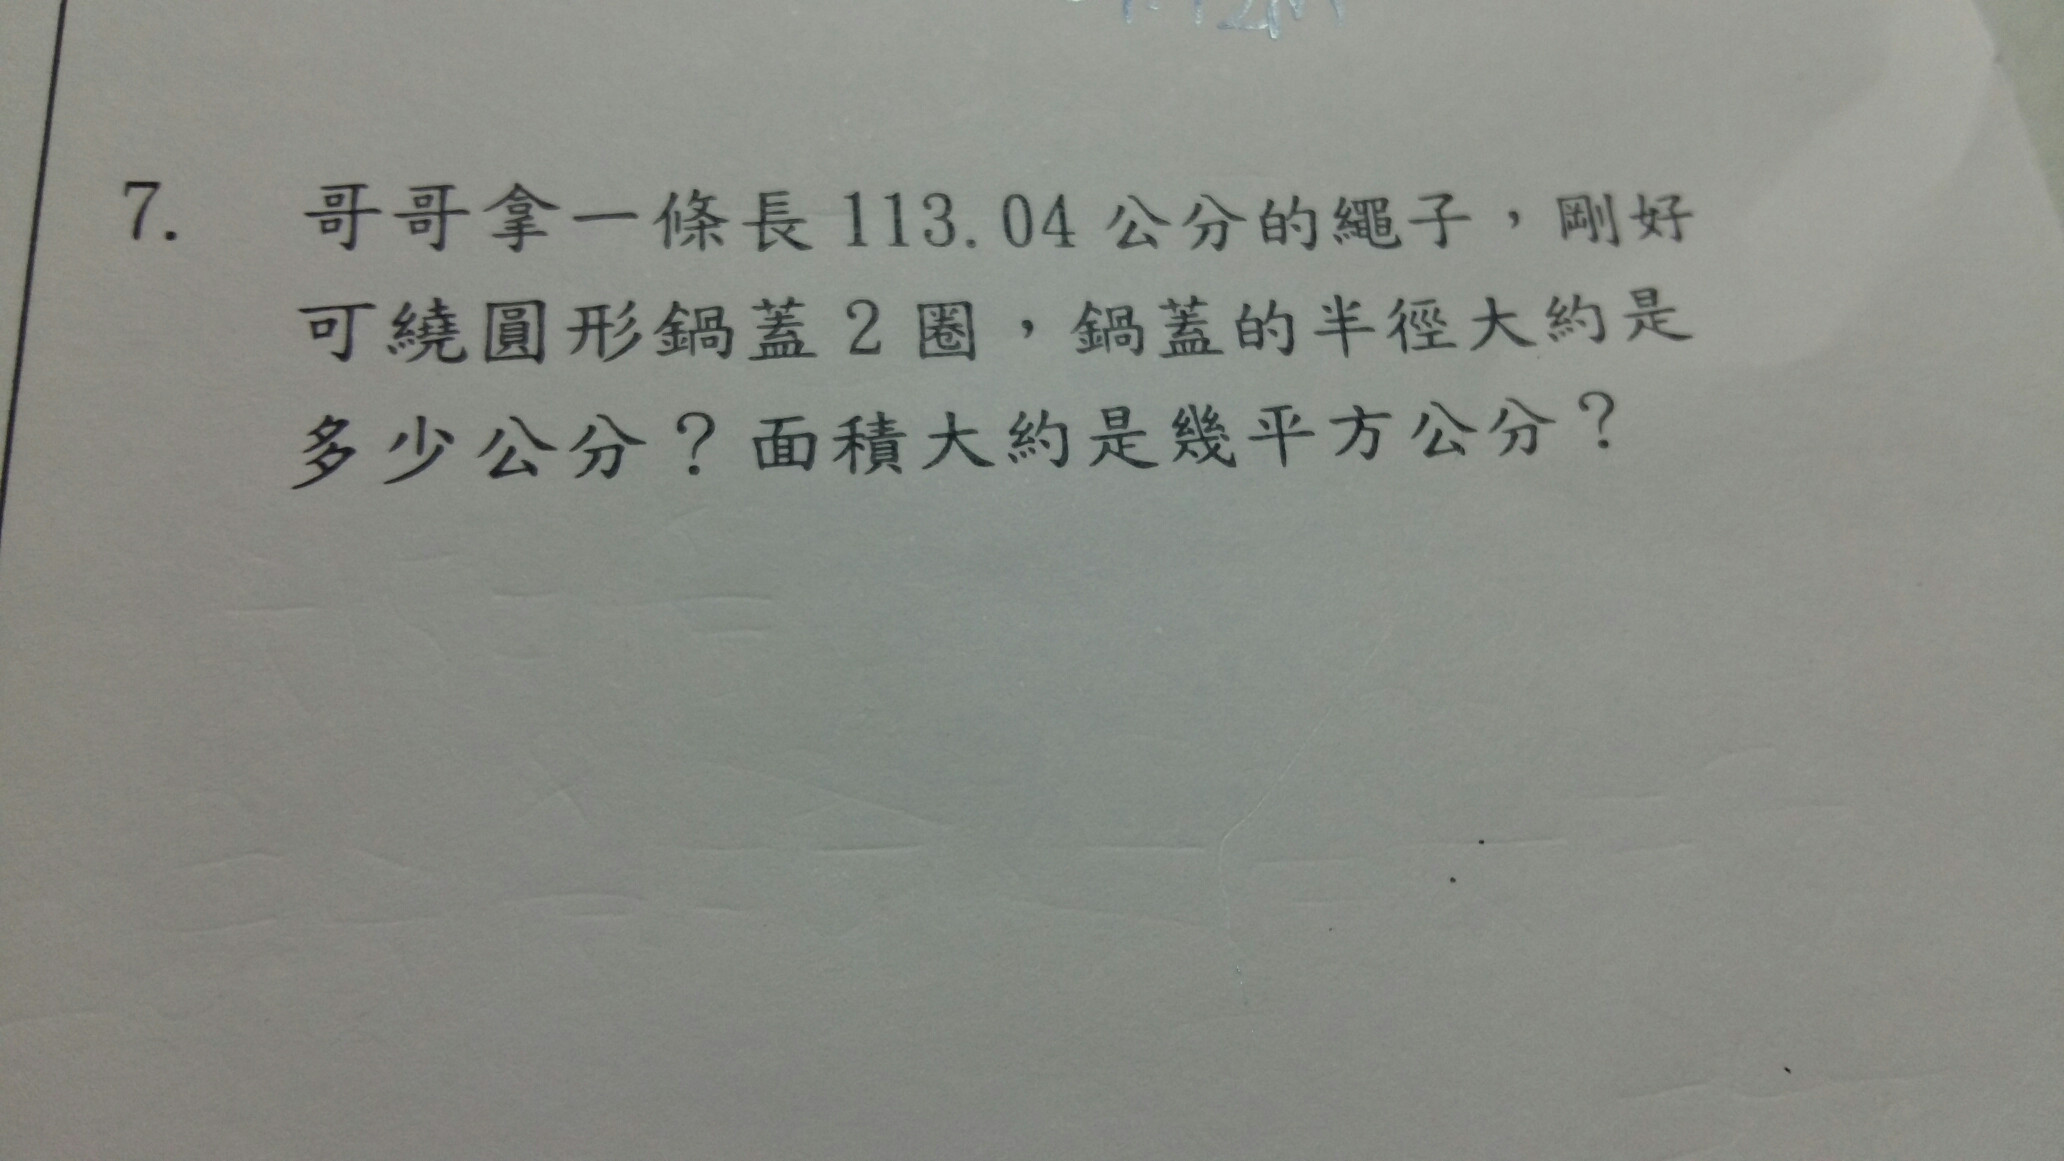 7. 哥哥拿一條長 113.04 公分的繩子，剛好
可繞圓形鍋蓋 2 圈，鍋蓋的半徑大約是
多少公分？面積大約是幾平方公分？